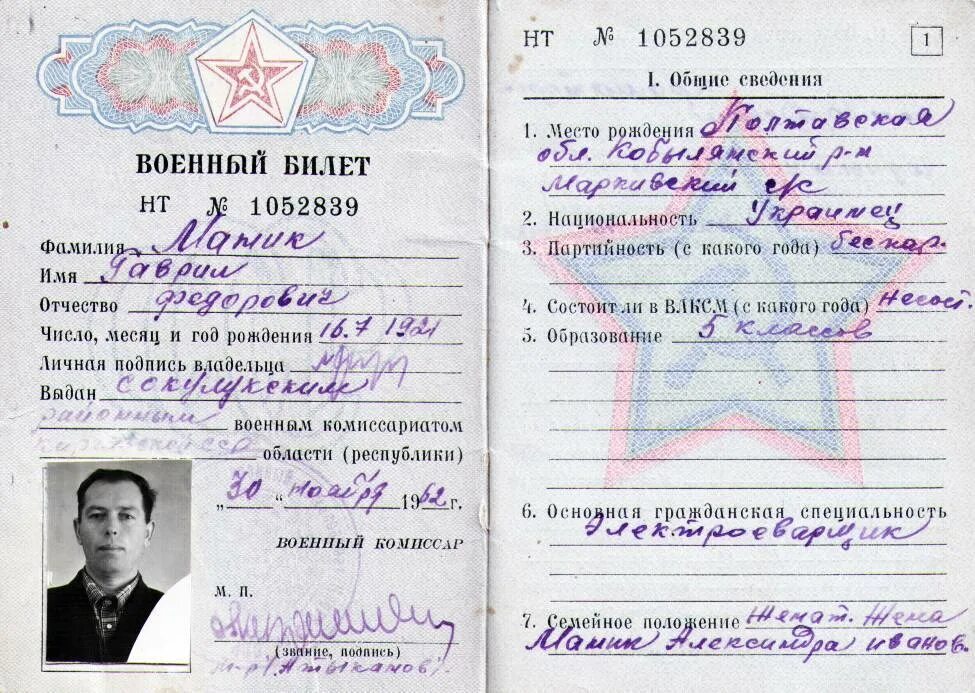 ВОЕННЫЙ БИЛЕТ
НТ № 1052839
Фамилия Матик
Имя Гаврил
Отчество Федорович
Число, месяц и год рождения 16.7 1921
Личная подпись владельца
Выдан Сокулукским
районным военным комиссариатом
Киргизской ССР области (республики)
„30" ноября 1962 г.
ВОЕННЫЙ КОМИССАР
М. П.
(звание, подпись)
НТ № 1052839
1
I. Общие сведения
1. Место рождения Полтавская
обл. Кобылянский р-н
Маркивский с/с
2. Национальность Украинец
3. Партийность (с какого года) беспар.
4. Состоит ли в ВЛКСМ (с какого года) Несост.
5. Образование 5 классов
6. Основная гражданская специальность
Электросварщик
7. Семейное положение Женат. Жена
Матик Александра Иванов.